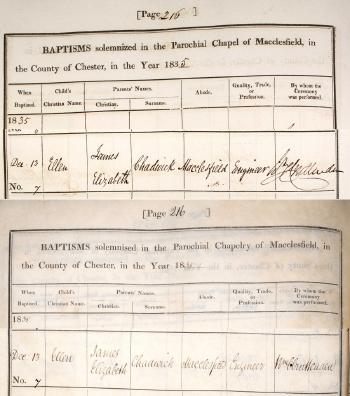 [Page 216 ]
BAPTISMS solemnized in the Parochial Chapel of Macclesfield, in
the County of Chester, in the Year 1835
When Baptized. Child's Christian Name. Parents' Names. Christian. Surname. Abode. Quality, Trade, or Profession. By whom the Ceremony was performed.
1835
Dec 13 Ellen James Elizabeth Chadwick Macclesfield Engineer
No. 7
[Page 216 ]
BAPTISMS solemnised in the Parochial Chapelry of Macclesfield, in
the County of Chester, in the Year 183
When Baptized. Child's Christian Name. Parents' Names. Christian. Surname. Abode. Quality, Trade, or Profession. By whom the Ceremony was performed.
183
Dec 13 Ellen James Elizabeth Chadwick Macclesfield Engineer Wm Cruttenden
No. 7